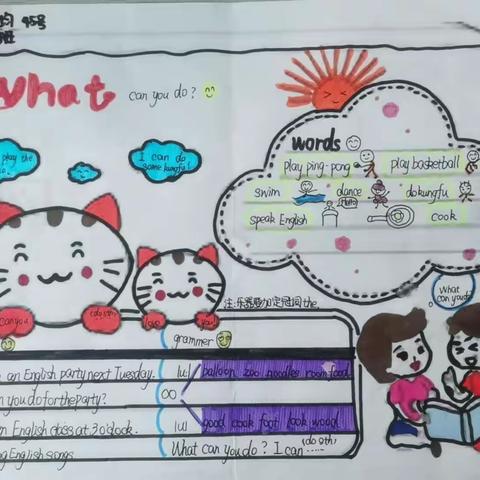 45号
What can you do?
play the
I can do
some kungfu!
words
play ping-pong play basketball
swim dance do kungfu
speak English cook
What
can you do?
can you do sth
love you
grammer
an English party next Tuesday.
you do for the party?
English class at 3 o'clock.
English songs
oo
[u] balloon zoo noodles room food
[u] good cook foot look wood
What can you do? I can ..... (do sth)